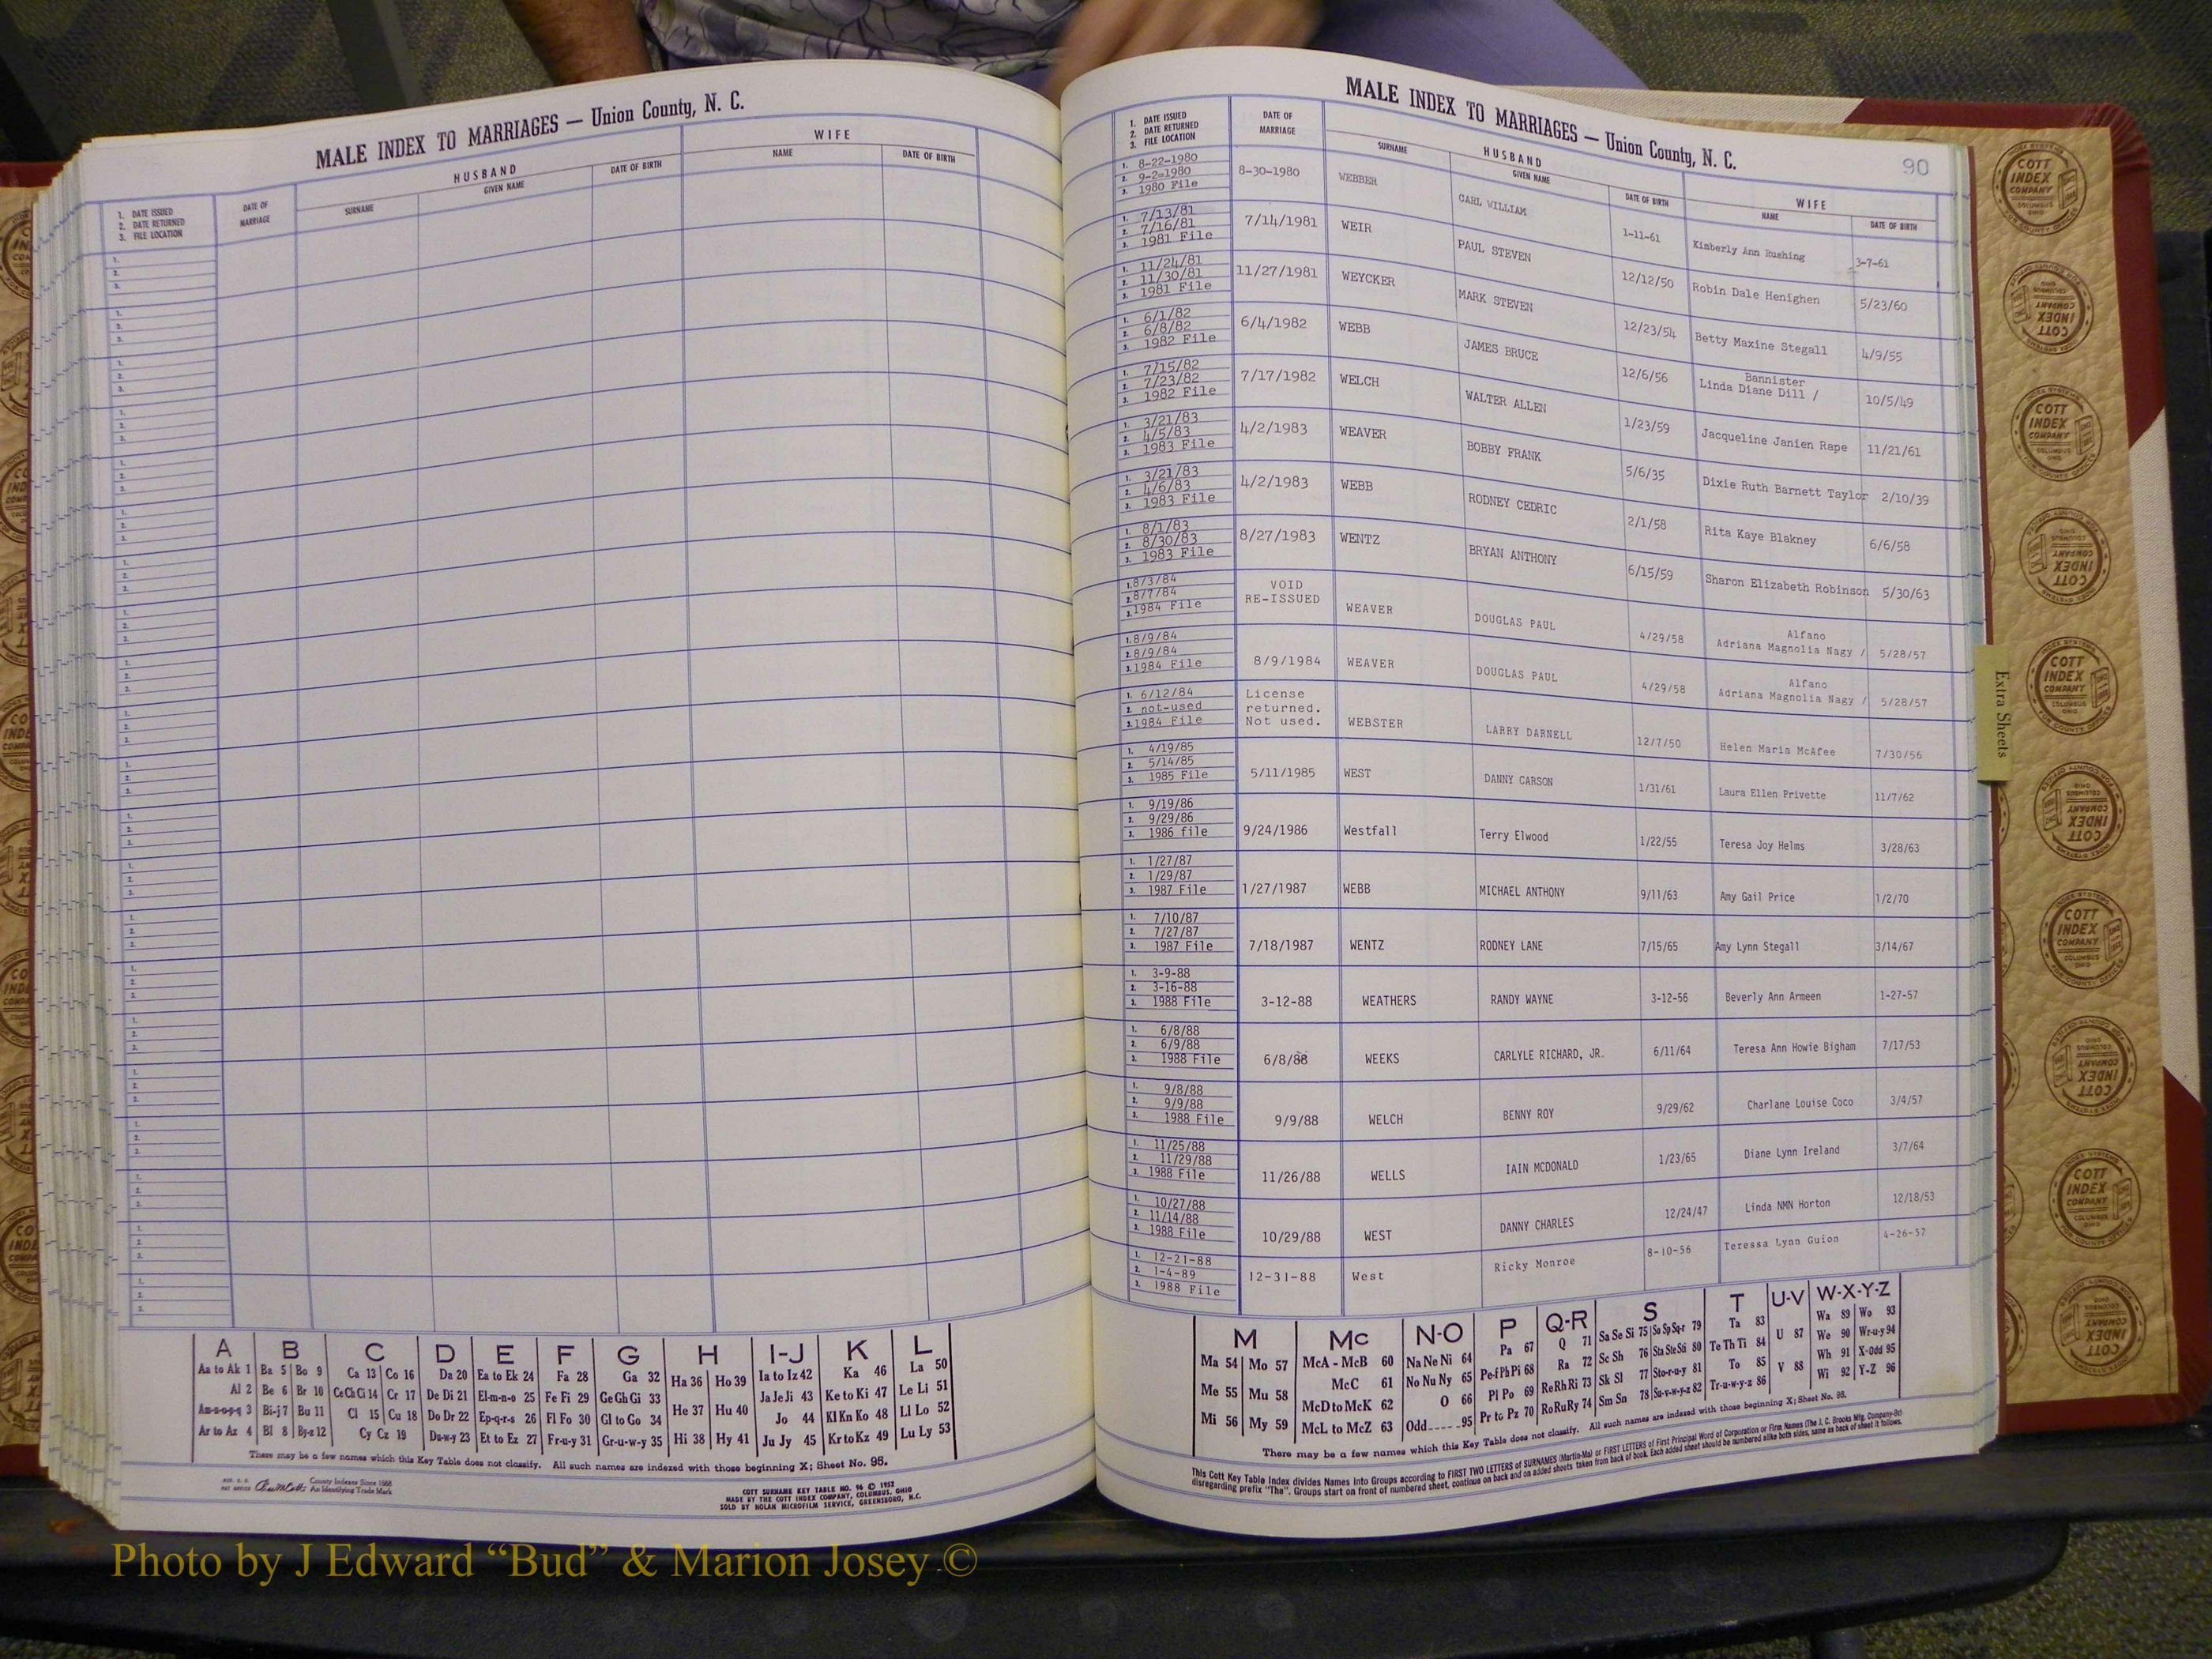 MALE INDEX TO MARRIAGES — Union County, N. C.
HUSBAND WIFE
1. DATE ISSUED
2. DATE RETURNED
3. FILE LOCATION
DATE OF MARRIAGE SURNAME GIVEN NAME DATE OF BIRTH NAME DATE OF BIRTH
A B C D E F G H I-J K L
Aa to Ak 1 Ba 5 Bo 9 Ca 13 Co 16 Da 20 Ea to Ek 24 Fa 28 Ga 32 Ha 36 Ho 39 Ia to Iz 42 Ka 46 La 50
Al 2 Be 6 Br 10 Ce Ch Ci 14 Cr 17 De Di 21 El-m-n-o 25 Fe Fi 29 Ge Gh Gi 33 Ja Je Ji 43 Ke to Ki 47 Le Li 51
Am-n-o-p-q 3 Bi-j 7 Bu 11 Cl 15 Cu 18 Do Dr 22 Ep-q-r-s 26 Fl Fo 30 Gl to Go 34 He 37 Hu 40 Jo 44 Kl Kn Ko 48 Ll Lo 52
Ar to Az 4 Bl 8 By-z 12 Cy Cz 19 Du-w-y 23 Et to Ez 27 Fr-u-y 31 Gr-u-w-y 35 Hi 38 Hy 41 Ju Jy 45 Kr to Kz 49 Lu Ly 53
There may be a few names which this Key Table does not classify. All such names are indexed with those beginning X; Sheet No. 95.
County Indexes Since 1888
An Identifying Trade Mark
COTT SURNAME KEY TABLE NO. 96 © 1952
MADE BY THE COTT INDEX COMPANY, COLUMBUS, OHIO
SOLD BY NOLAN MICROFILM SERVICE, GREENSBORO, N.C.
MALE INDEX TO MARRIAGES — Union County, N. C.
90
1. DATE ISSUED
2. DATE RETURNED
3. FILE LOCATION
DATE OF MARRIAGE
HUSBAND WIFE
SURNAME GIVEN NAME DATE OF BIRTH NAME DATE OF BIRTH
1. 8-22-1980
2. 9-2-1980
3. 1980 File
8-30-1980 WEBBER CARL WILLIAM 1-11-61 Kimberly Ann Rushing 3-7-61
1. 7/13/81
2. 7/16/81
3. 1981 File
7/14/1981 WEIR PAUL STEVEN 12/12/50 Robin Dale Henighen 5/23/60
1. 11/24/81
2. 11/30/81
3. 1981 File
11/27/1981 WEYCKER MARK STEVEN 12/23/54 Betty Maxine Stegall 4/9/55
1. 6/1/82
2. 6/8/82
3. 1982 File
6/4/1982 WEBB JAMES BRUCE 12/6/56 Bannister
Linda Diane Dill / 10/5/49
1. 7/15/82
2. 7/23/82
3. 1982 File
7/17/1982 WELCH WALTER ALLEN 1/23/59 Jacqueline Janien Rape 11/21/61
1. 3/21/83
2. 4/5/83
3. 1983 File
4/2/1983 WEAVER BOBBY FRANK 5/6/35 Dixie Ruth Barnett Taylor 2/10/39
1. 3/21/83
2. 4/6/83
3. 1983 File
4/2/1983 WEBB RODNEY CEDRIC 2/1/58 Rita Kaye Blakney 6/6/58
1. 8/1/83
2. 8/30/83
3. 1983 File
8/27/1983 WENTZ BRYAN ANTHONY 6/15/59 Sharon Elizabeth Robinson 5/30/63
1. 8/3/84
2. 8/7/84
3. 1984 File
VOID
RE-ISSUED WEAVER DOUGLAS PAUL 4/29/58 Alfano
Adriana Magnolia Nagy / 5/28/57
1. 8/9/84
2. 8/9/84
3. 1984 File
8/9/1984 WEAVER DOUGLAS PAUL 4/29/58 Alfano
Adriana Magnolia Nagy / 5/28/57
1. 6/12/84
2. not-used
3. 1984 File
License
returned.
Not used. WEBSTER LARRY DARNELL 12/7/50 Helen Maria McAfee 7/30/56
1. 4/19/85
2. 5/14/85
3. 1985 File
5/11/1985 WEST DANNY CARSON 1/31/61 Laura Ellen Privette 11/7/62
1. 9/19/86
2. 9/29/86
3. 1986 file
9/24/1986 Westfall Terry Elwood 1/22/55 Teresa Joy Helms 3/28/63
1. 1/27/87
2. 1/29/87
3. 1987 File
1/27/1987 WEBB MICHAEL ANTHONY 9/11/63 Amy Gail Price 1/2/70
1. 7/10/87
2. 7/27/87
3. 1987 File
7/18/1987 WENTZ RODNEY LANE 7/15/65 Amy Lynn Stegall 3/14/67
1. 3-9-88
2. 3-16-88
3. 1988 File
3-12-88 WEATHERS RANDY WAYNE 3-12-56 Beverly Ann Armeen 1-27-57
1. 6/8/88
2. 6/9/88
3. 1988 File
6/8/88 WEEKS CARLYLE RICHARD, JR. 6/11/64 Teresa Ann Howie Bigham 7/17/53
1. 9/8/88
2. 9/9/88
3. 1988 File
9/9/88 WELCH BENNY ROY 9/29/62 Charlane Louise Coco 3/4/57
1. 11/25/88
2. 11/29/88
3. 1988 File
11/26/88 WELLS IAIN MCDONALD 1/23/65 Diane Lynn Ireland 3/7/64
1. 10/27/88
2. 11/14/88
3. 1988 File
10/29/88 WEST DANNY CHARLES 12/24/47 Linda NMN Horton 12/18/53
1. 12-21-88
2. 1-4-89
3. 1988 File
12-31-88 West Ricky Monroe 8-10-56 Teressa Lynn Guion 4-26-57
M Mc N-O P Q-R S T U-V W-X-Y-Z
Ma 54 Mo 57 McA - McB 60 Na Ne Ni 64 Pa 67 Q 71 Sa Se Si 75 So Sp Sq-r 79 Ta 83 U 87 Wa 89 Wo 93
Me 55 Mu 58 McC 61 No Nu Ny 65 Pe-f Ph Pi 68 Ra 72 Sc Sh 76 Sta Ste Sti 80 Te Th Ti 84 V 88 We 90 Wr-u-y 94
McD to McK 62 O 66 Pl Po 69 Re Rh Ri 73 Sk Sl 77 Sto-r-u-y 81 To 85 Wh 91 X-Odd 95
Mi 56 My 59 McL to McZ 63 Odd 95 Pr to Pz 70 Ro Ru Ry 74 Sm Sn 78 Su-v-w-y-z 82 Tr-u-w-y-z 86 Wi 92 Y-Z 96
There may be a few names which this Key Table does not classify. All such names are indexed with those beginning X; Sheet No. 95.
This Cott Key Table Index divides Names Into Groups according to FIRST TWO LETTERS of SURNAMES (Martin-Ma) or FIRST LETTERS of First Principal Word of Corporation or Firm Names (The J. C. Brooks Mfg. Company-Br)
disregarding prefix "The". Groups start on front of numbered sheet, continue on back and on added sheets taken from back of book. Each added sheet should be numbered alike both sides, same as back of sheet it follows.
Extra Sheets
COTT
INDEX
COMPANY
COLUMBUS
OHIO
Photo by J Edward “Bud” & Marion Josey ©